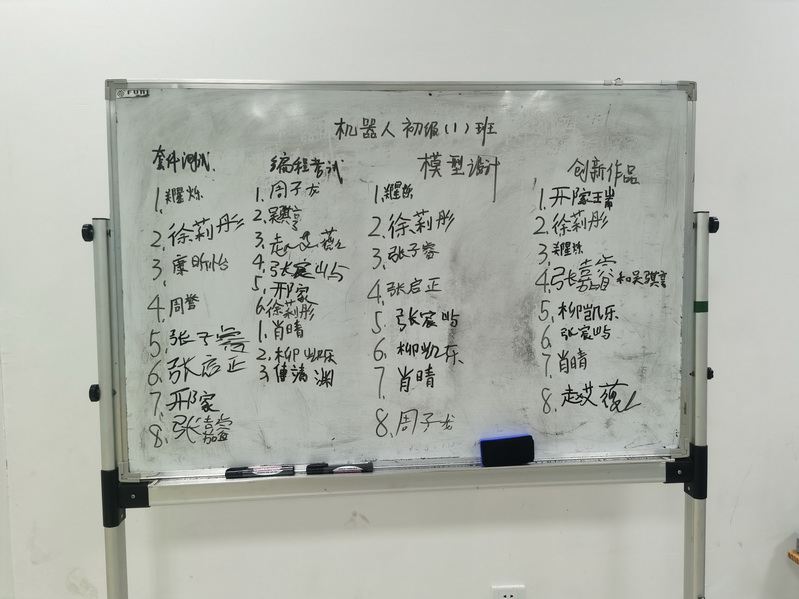 机器人初级(1)班
套件测试
1.耀烁
2.徐莉彤
3.康昕怡
4.周誉
5.张子蓉
6.张启正
7.邢家
8.张嘉
编程考试
1.周子龙
2.吴骐言
3.赵艾
4.张宸屿
5.邢家
6.徐莉彤
1.肖晴
2.柳凯乐
3.傅清渊
模型设计
1.耀烁
2.徐莉彤
3.张子蓉
4.张启正
5.张宸屿
6.柳凯乐
7.肖晴
8.周子龙
创新作品
1.邢家
2.徐莉彤
3.耀烁
4.张嘉 和吴骐言
5.柳凯乐
6.张宸屿
7.肖晴
8.赵艾